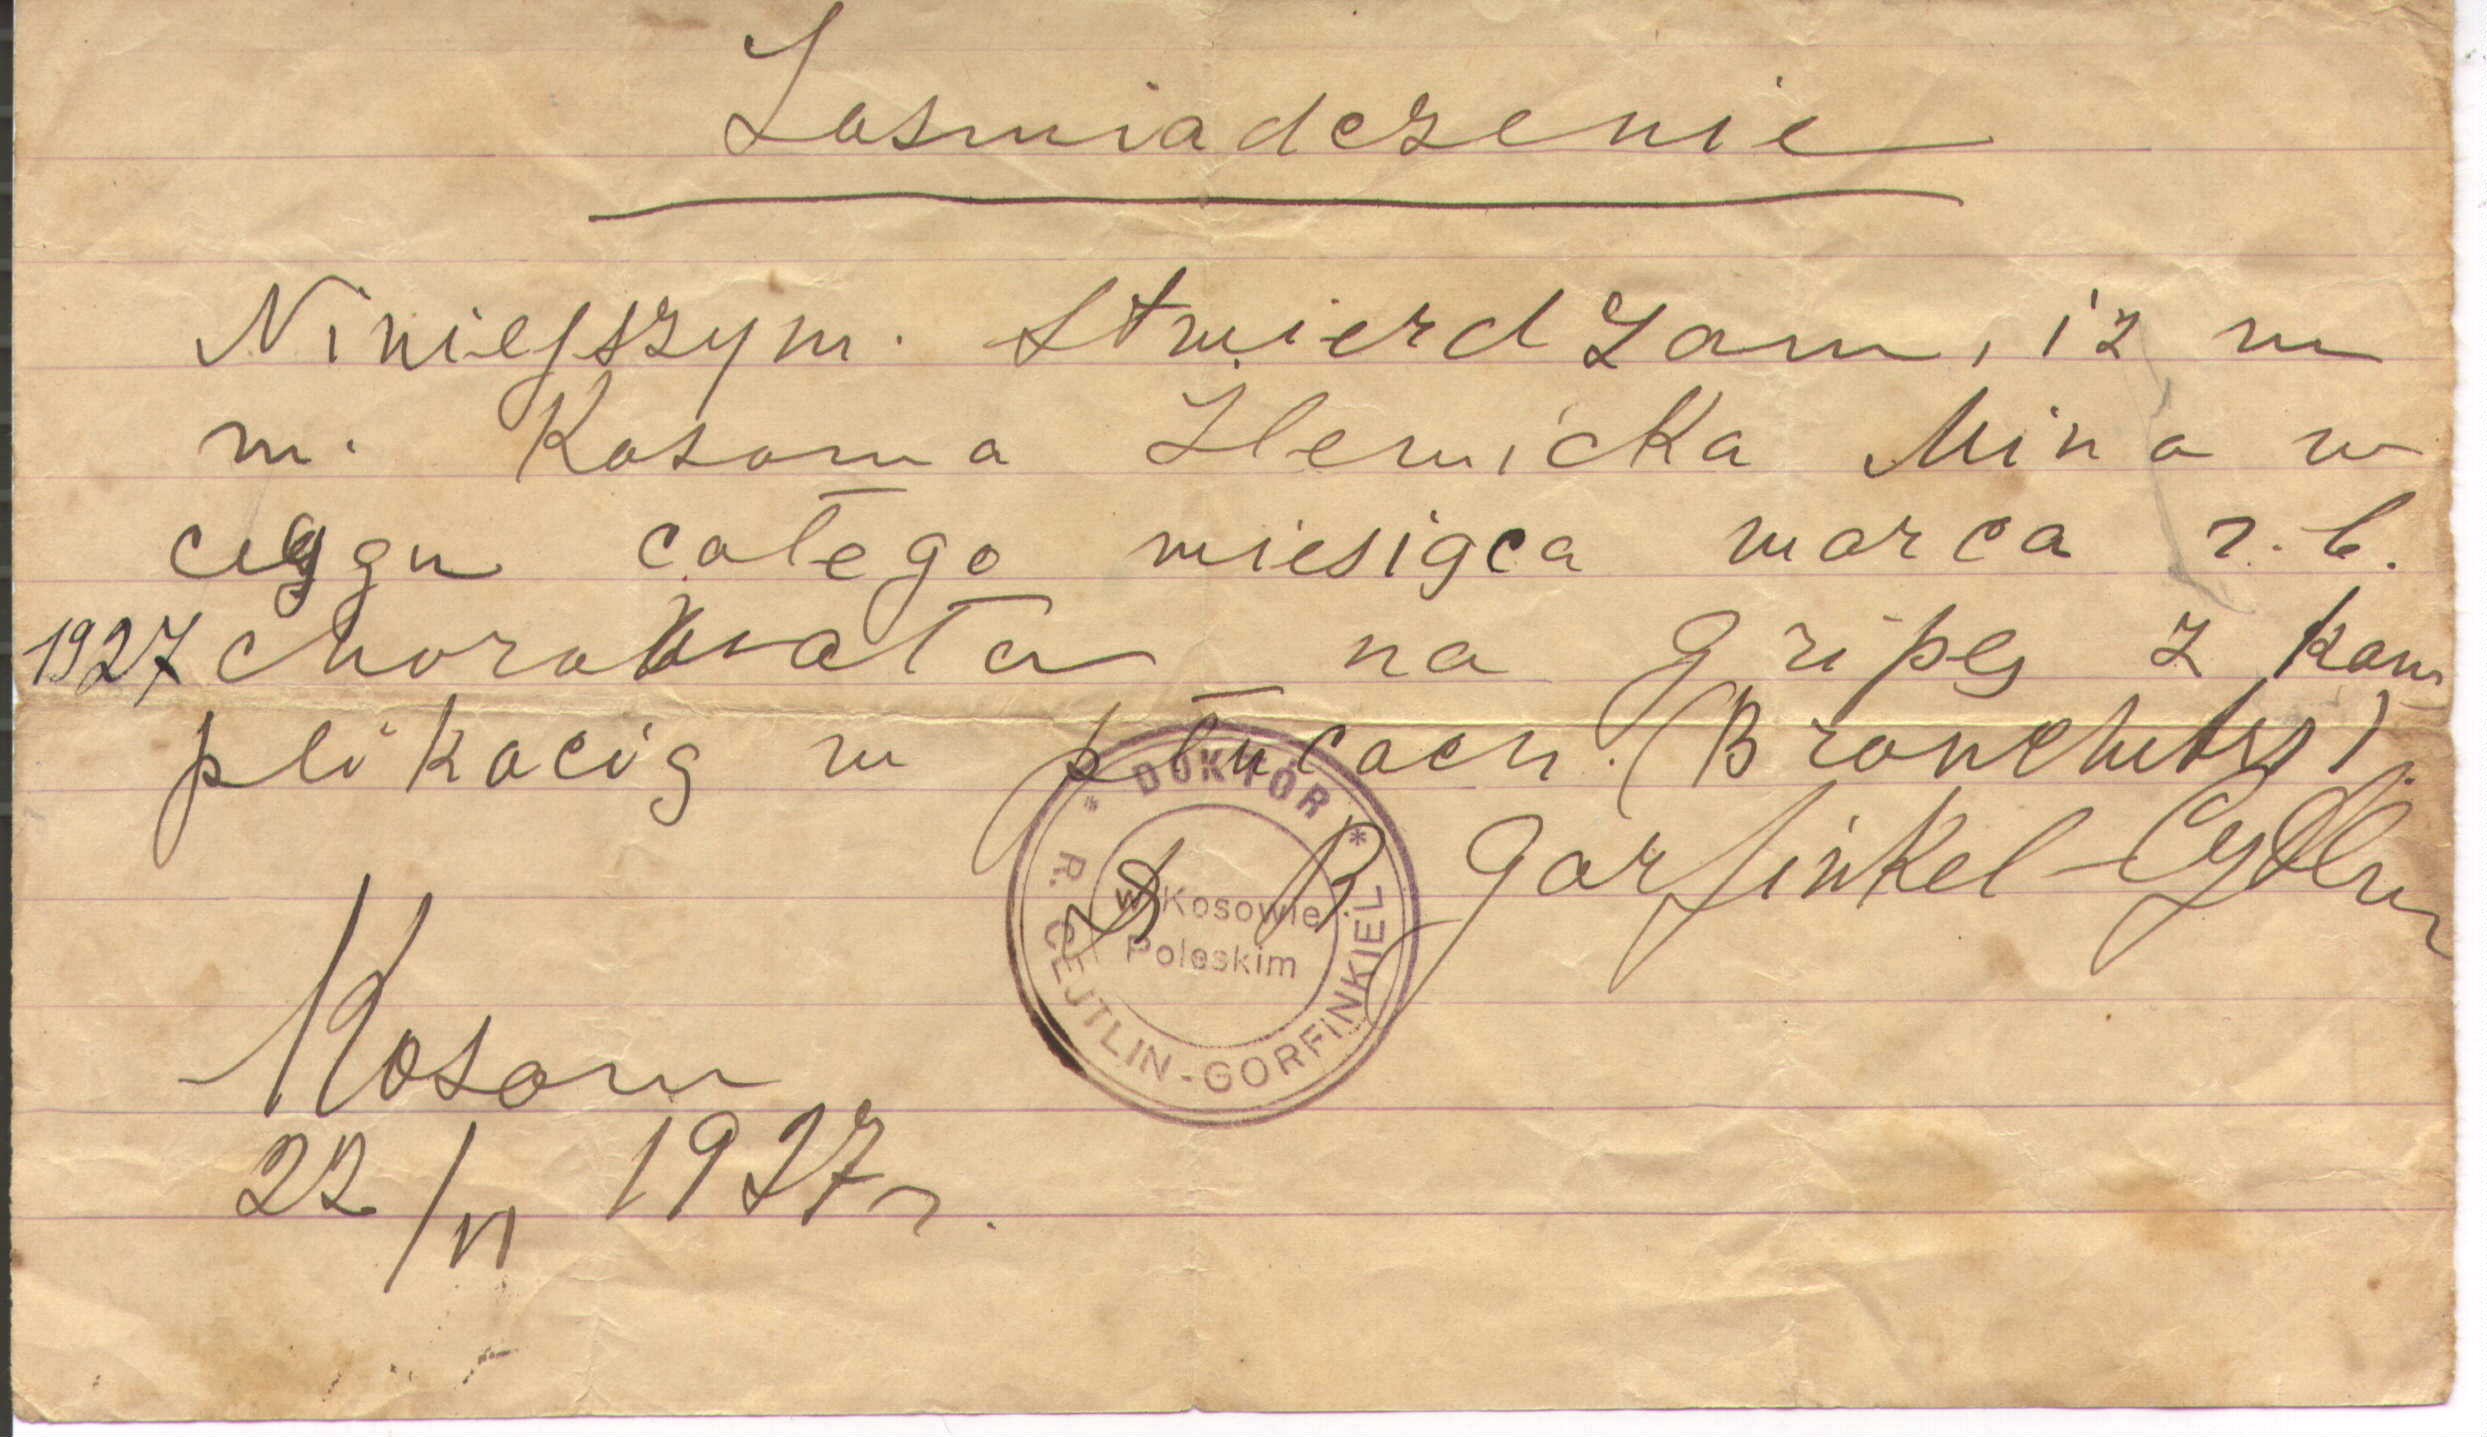 Zaswiadczenie
Niniejszym. Stwierdzam, iz m
m. Kosowa Zlewicka Mina w
ciągu całego miesiąca marca r.b.
1927 chorowała na gripę z kom
plikacią w płucach. (Bronchitis).
Garfinkel-Cytlin
DOKTOR
R. CEJTLIN-GORFINKIEL
w Kosowie
Poleskim
Kosow
22/VI 1927 r.